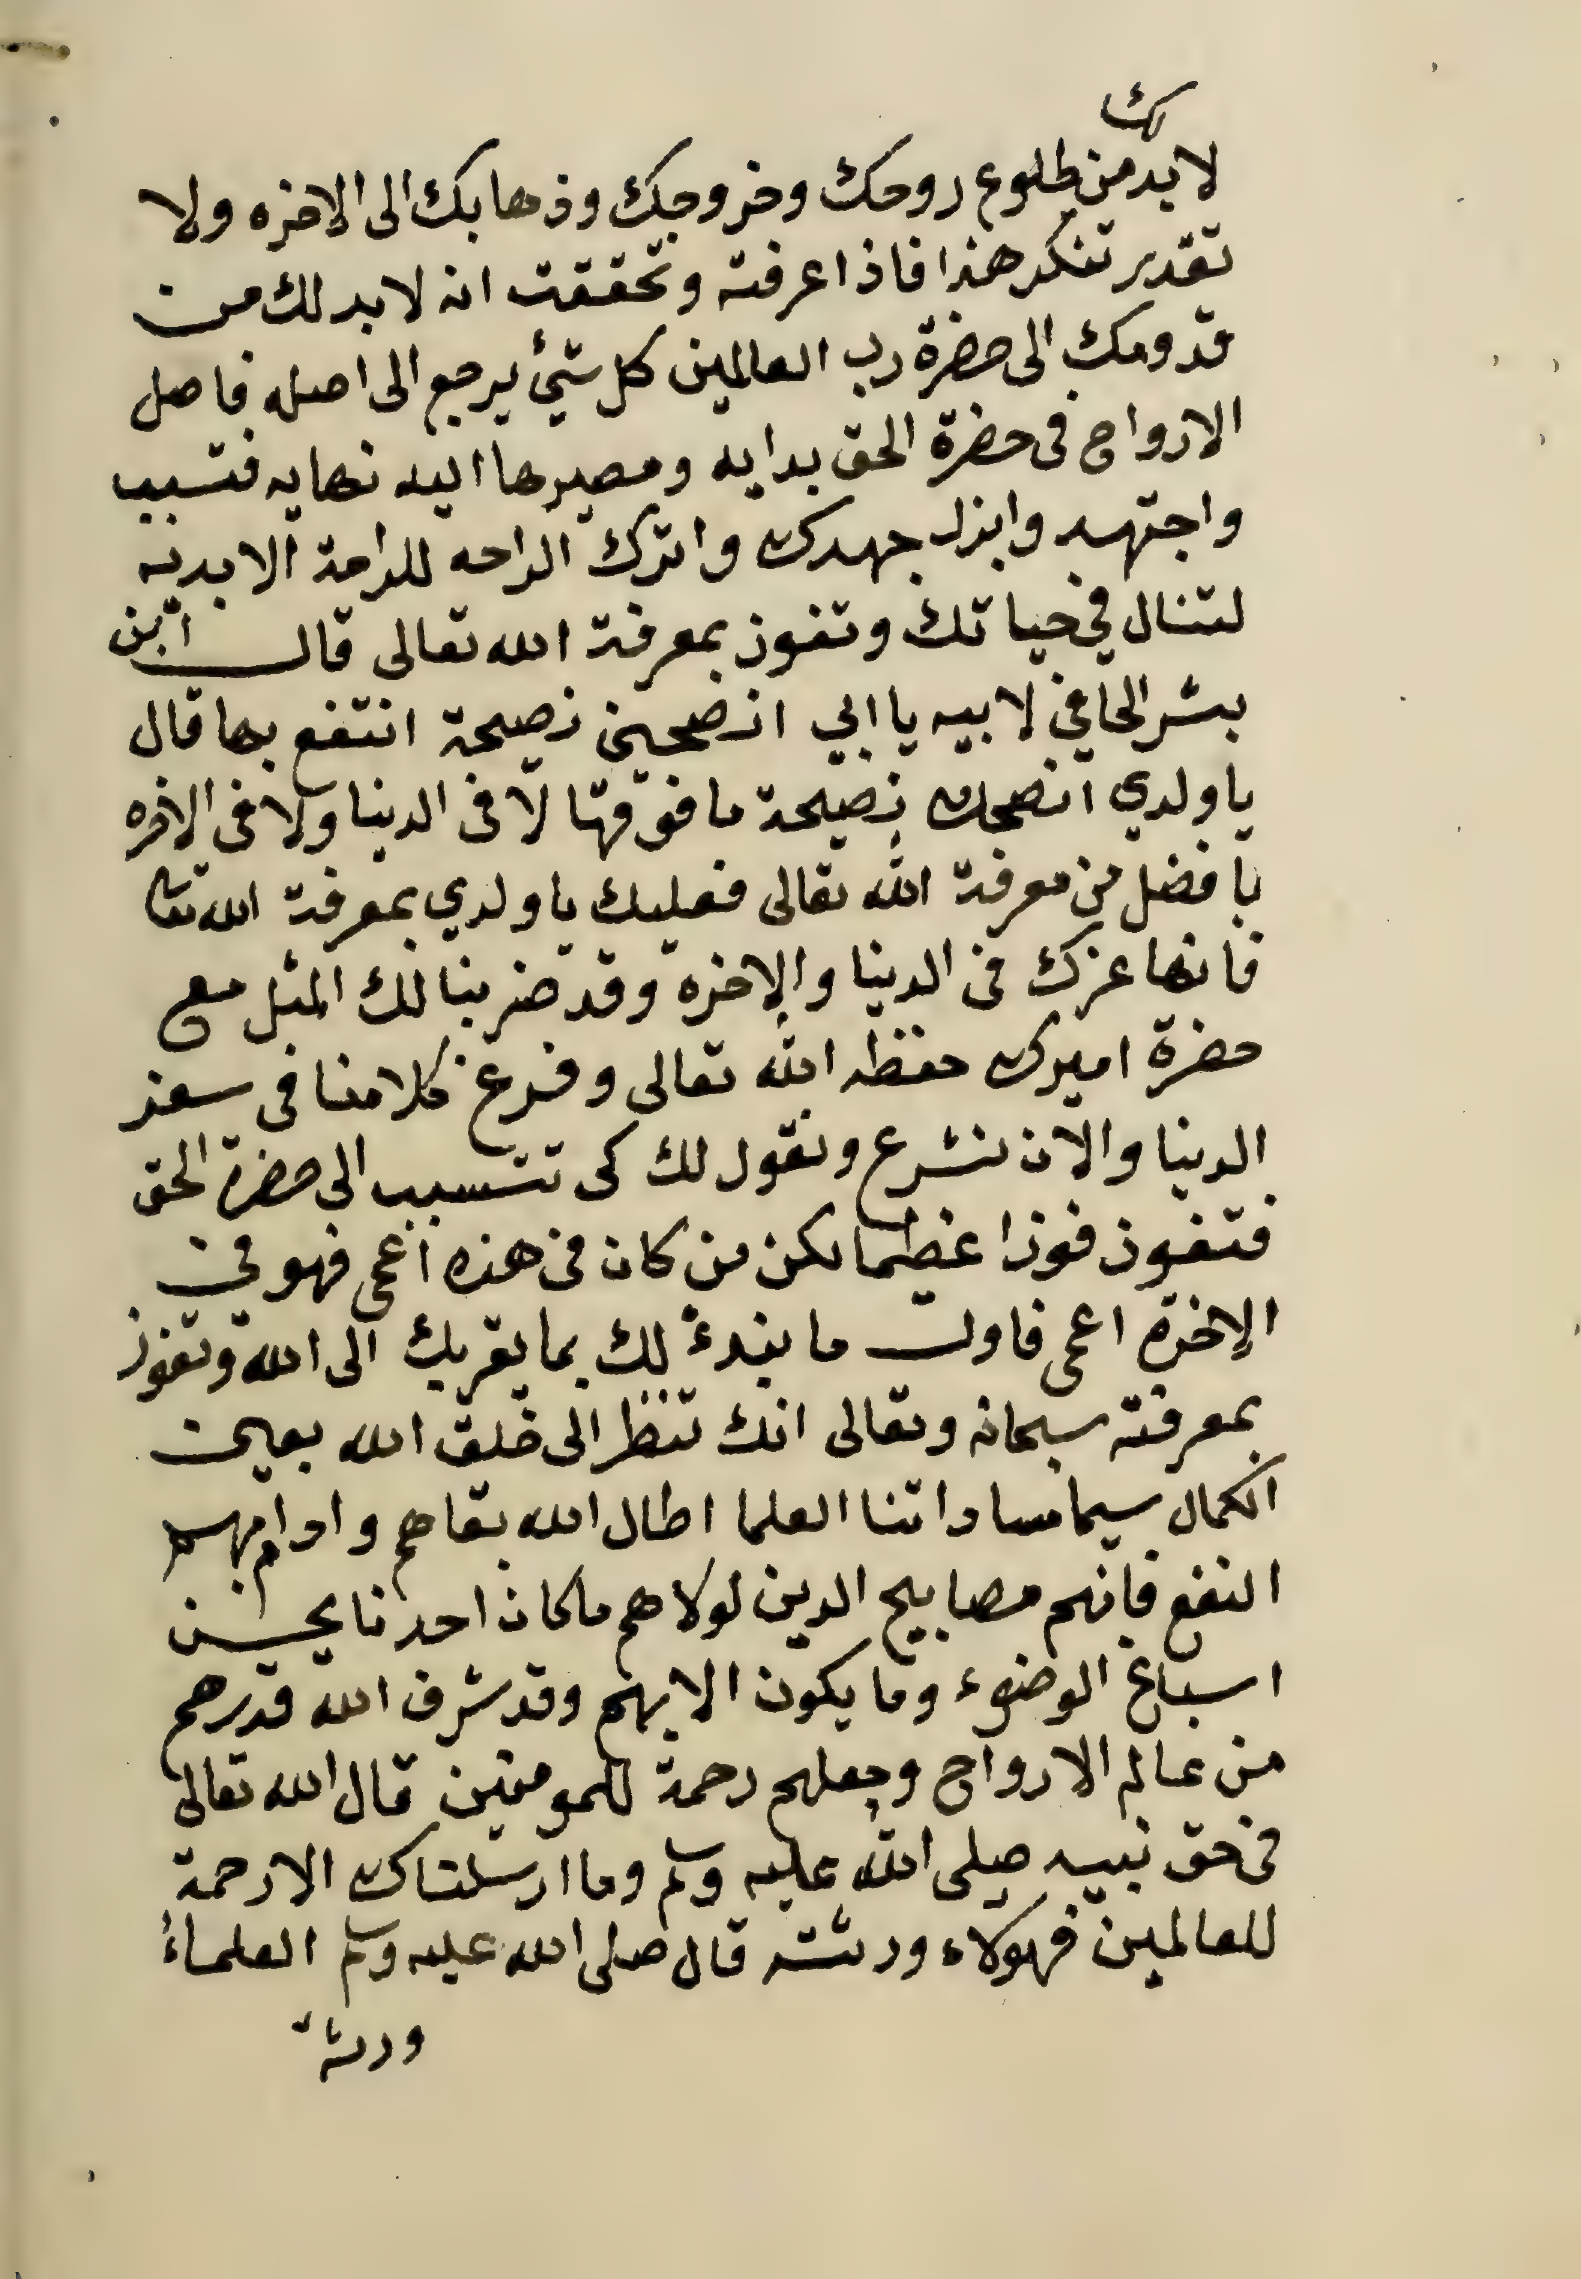 لك
لابد من طلوع روحك وخروجك وذهابك الى الاخره ولا
تقدر تنكر هذا فاذا عرفته وتحققت انه لابد لك من
قدومك الى حضرة رب العالمين كل شيئ يرجع الى اصله فاصل
الارواح فى حضرة الحق بدايه ومصيرها اليه نهايه فتسبب
واجتهد وابذل جهدك واترك الراحه للراحة الابديه
لتنال في حياتك وتفوز بمعرفة الله تعالى قال ابن
بشر الحافي لابيه يا ابي انضحيني نصيحة انتفع بها قال
يا ولدي انصحك نصيحة ما فوقها لا فى الدنيا ولا فى الاخره
بافضل من معرفة الله تعالى فعليك يا ولدي بمعرفة الله تعا
فانها عزك فى الدنيا والاخرة وقد ضربنا لك المثل مع
حضرة اميرك حفظه الله تعالى وفرغ كلامنا فى سفر
الدنيا والان نشرع ونقول لك كى تتسبب الى حضرة الحق
فتفوز فوزا عظيما لكن من كان فى هذه اعمى فهو في
الاخرة اعمى فاول ما نبدء لك بما يقربك الى الله وتفوز
بمعرفته سبحانه وتعالى انك تنظر الى خلق الله بعين
الكمال سيما ساداتنا العلما اطال الله بقاهم وادام بهم
النفع فانهم مصابيح الدين لولا هم ماكان احدنا يحسن
اسباغ الوضوء وما يكون الا بهم وقد شرف الله قدرهم
من عالم الارواح وجعلهم رحمة للمومنين قال الله تعالى
فى حق نبيه صلى الله عليه وسلم وما ارسلناك الا رحمة
للعالمين فهولاء ورثته قال صلى الله عليه وسلم العلماء
ورثة